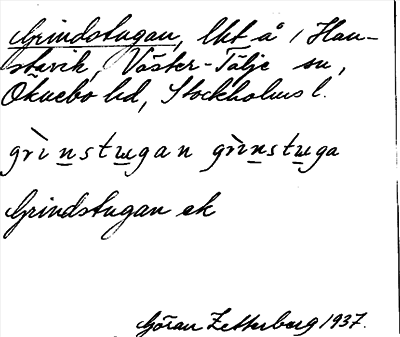 Grindstugan, lht å 1 Han-
stavik, Väster-Tälje sn,
Öknebo hd, Stockholms l.
grìnstugan grìnstuga
Grindstugan ek
Göran Zetterberg 1937.